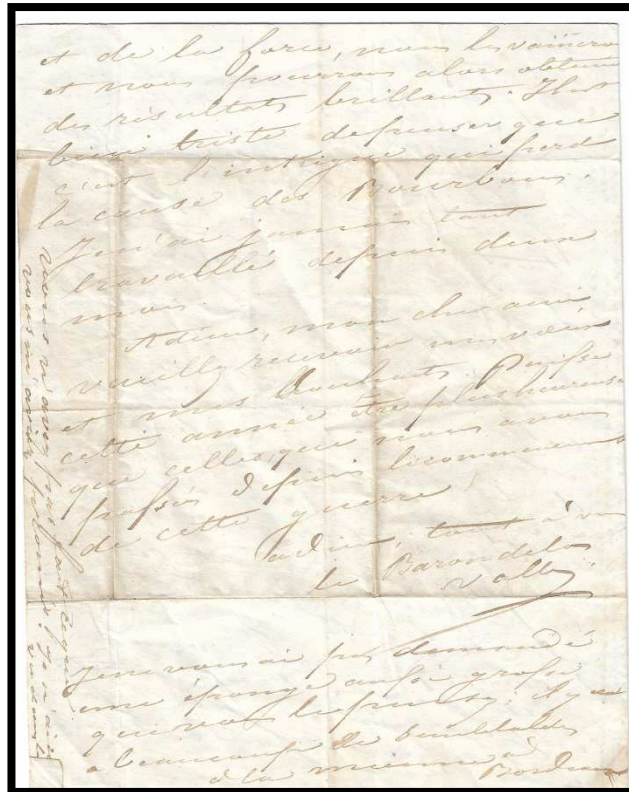 et de la force, nous les vaincrons
et nous pourrons alors obtenir
des résultats brillants. Il est
bien triste de penser que
c'est l'intrigue qui perd
la cause des Bourbons.
Je n'ai jamais tant
travaillé depuis deux
mois.
Adieu, mon cher ami
veuillez recevoir mes vœux
et mes souhaits. Puisse
cette année être plus heureuse
que celles que nous avons
passés depuis le commencement
de cette guerre
adieu, tout à vous
le Baron de los
Valles
Je ne vous ai pas demandé
une éponge aussi grosse
que vous le pensez, il y en
a beaucoup de semblables
à la mienne à
Bordeaux
vous n'avez pas fait ce que
vous m'aviez promis! je n'ai